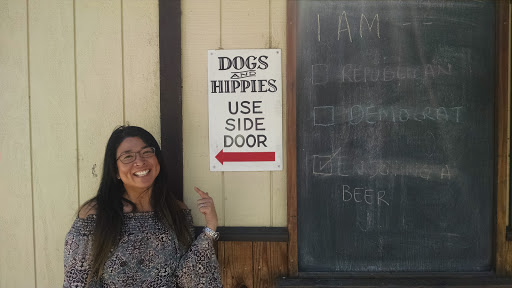 DOGS
AND
HIPPIES
USE
SIDE
DOOR
I AM ---
REPUBLICAN
DEMOCRAT
ENJOYING A
BEER